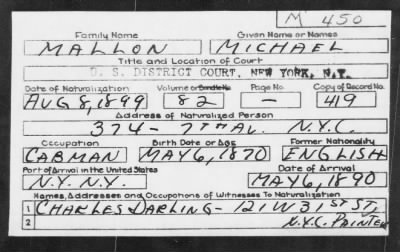 M 450
Family Name Given Name or Names
MALLON MICHAEL
Title and Location of Court
U. S. DISTRICT COURT, NEW YORK, N.Y.
Date of Naturalization Volume or Bundle No. Page No. Copy of Record No.
AUG 8, 1899 82 — 419
Address of Naturalized Person
374 - 7TH AV. N.Y.C.
Occupation Birth Date or Age Former Nationality
CABMAN MAY 6, 1870 ENGLISH
Port of Arrival in the United States Date of Arrival
N.Y. N.Y. MAY 6, 1890
Names, Addresses and Occupations of Witnesses To Naturalization
1 CHARLES DARLING - 121 W 31ST ST,
2 N.Y.C. PAINTER